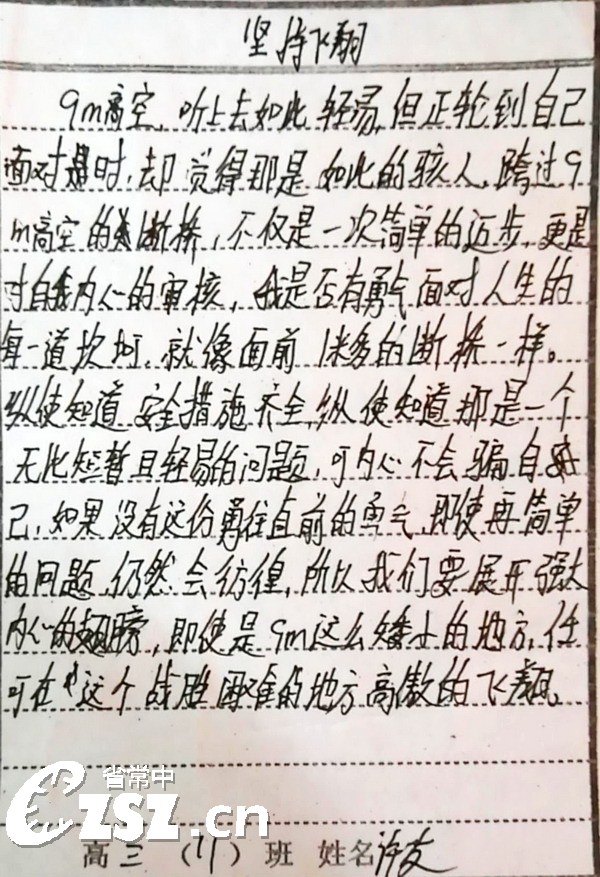 坚持飞翔
9m高空,听上去如此轻易,但正轮到自己
面对时,却觉得那是如此的骇人,跨过9
m高空的断桥,不仅是一次简单的迈步,更是
对自我内心的审核,我是否有勇气面对人生的
每一道坎坷,就像面前1米多的断桥一样。
纵使知道安全措施齐全,纵使知道那是一个
无比短暂且轻易的问题,可内心不会骗自
己,如果没有这份勇往直前的勇气,即使再简单
的问题,仍然会彷徨,所以我们要展开强大
内心的翅膀,即使是9m这么矮小的地方,任
可在这个战胜困难的地方高傲的飞翔。
省常中
CZSZ.cn
高三(11)班 姓名许友